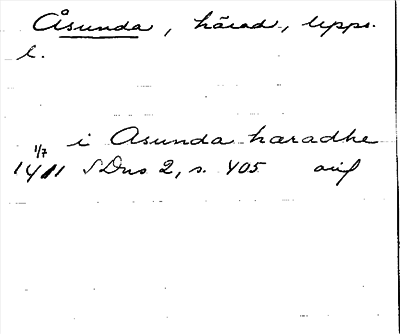 Åsunda, härad, Upps.
l.
i Asunda haradhe
1/7
1411 SDns 2, s. 405 avf